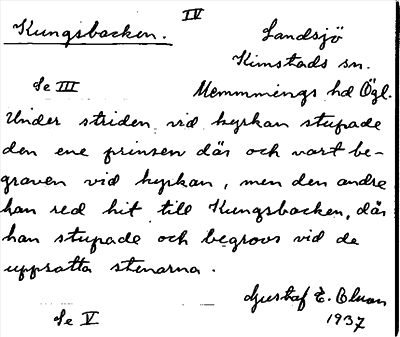 IV
Kungsbacken.
Landsjö
Kimstads sn.
Se III
Memmings hd Ögl.
Under striden vid kyrkan stupade
den ene prinsen där och vart be-
graven vid kyrkan, men den andre
han red hit till Kungsbacken, där
han stupade och begrovs vid de
uppsatta stenarna.
Gustaf E.
1937
Se V